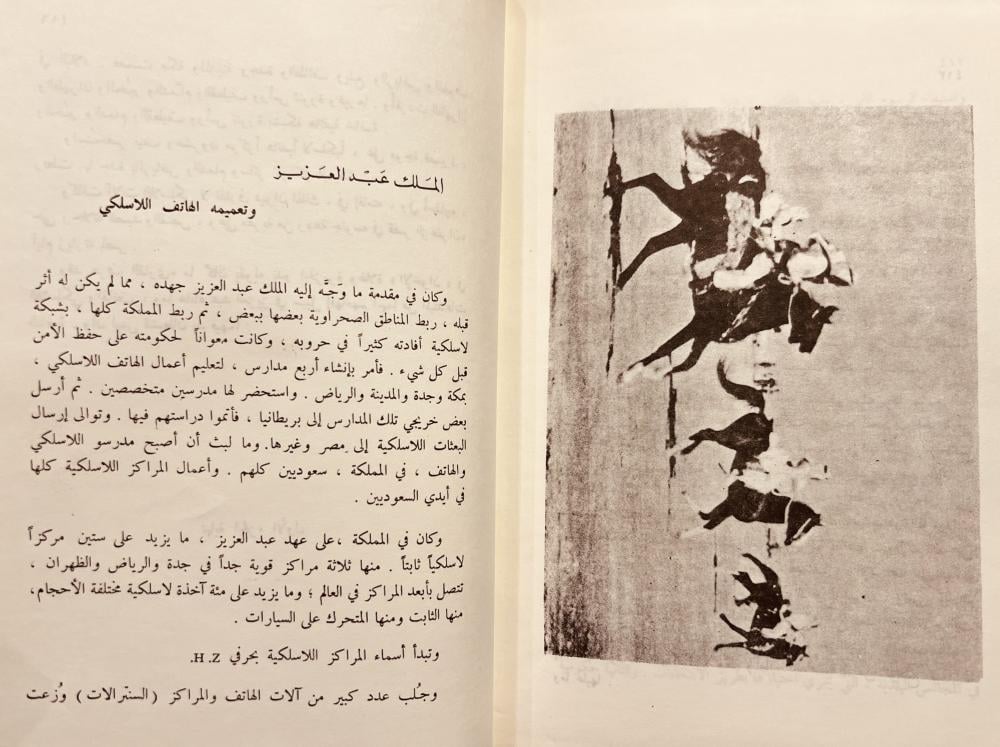 الملك عبد العزيز
وتعميمه الهاتف اللاسلكي
وكان في مقدمة ما وَجَّه إليه الملك عبد العزيز جهده ، مما لم يكن له أثر
قبله ، ربط المناطق الصحراوية بعضها ببعض ، ثم ربط المملكة كلها ، بشبكة
لاسلكية أفادته كثيراً في حروبه ، وكانت معواناً لحكومته على حفظ الأمن
قبل كل شيء . فأمر بإنشاء أربع مدارس ، لتعليم أعمال الهاتف اللاسلكي ،
بمكة وجدة والمدينة والرياض . واستحضر لها مدرسين متخصصين . ثم أرسل
بعض خريجي تلك المدارس إلى بريطانيا ، فأتموا دراستهم فيها . وتوالى إرسال
البعثات اللاسلكية إلى مصر وغيرها. وما لبث أن أصبح مدرسو اللاسلكي
والهاتف ، في المملكة ، سعوديين كلهم . وأعمال المراكز اللاسلكية كلها
في أيدي السعوديين .
وكان في المملكة ،على عهد عبد العزيز ، ما يزيد على ستين مركزاً
لاسلكياً ثابتاً . منها ثلاثة مراكز قوية جداً في جدة والرياض والظهران ،
تتصل بأبعد المراكز في العالم ؛ وما يزيد على مئة آخذة لاسلكية مختلفة الأحجام،
منها الثابت ومنها المتحرك على السيارات .
وتبدأ أسماء المراكز اللاسلكية بحرفي H. Z.
وجُلب عدد كبير من آلات الهاتف والمراكز (السنترالات) وُزعت